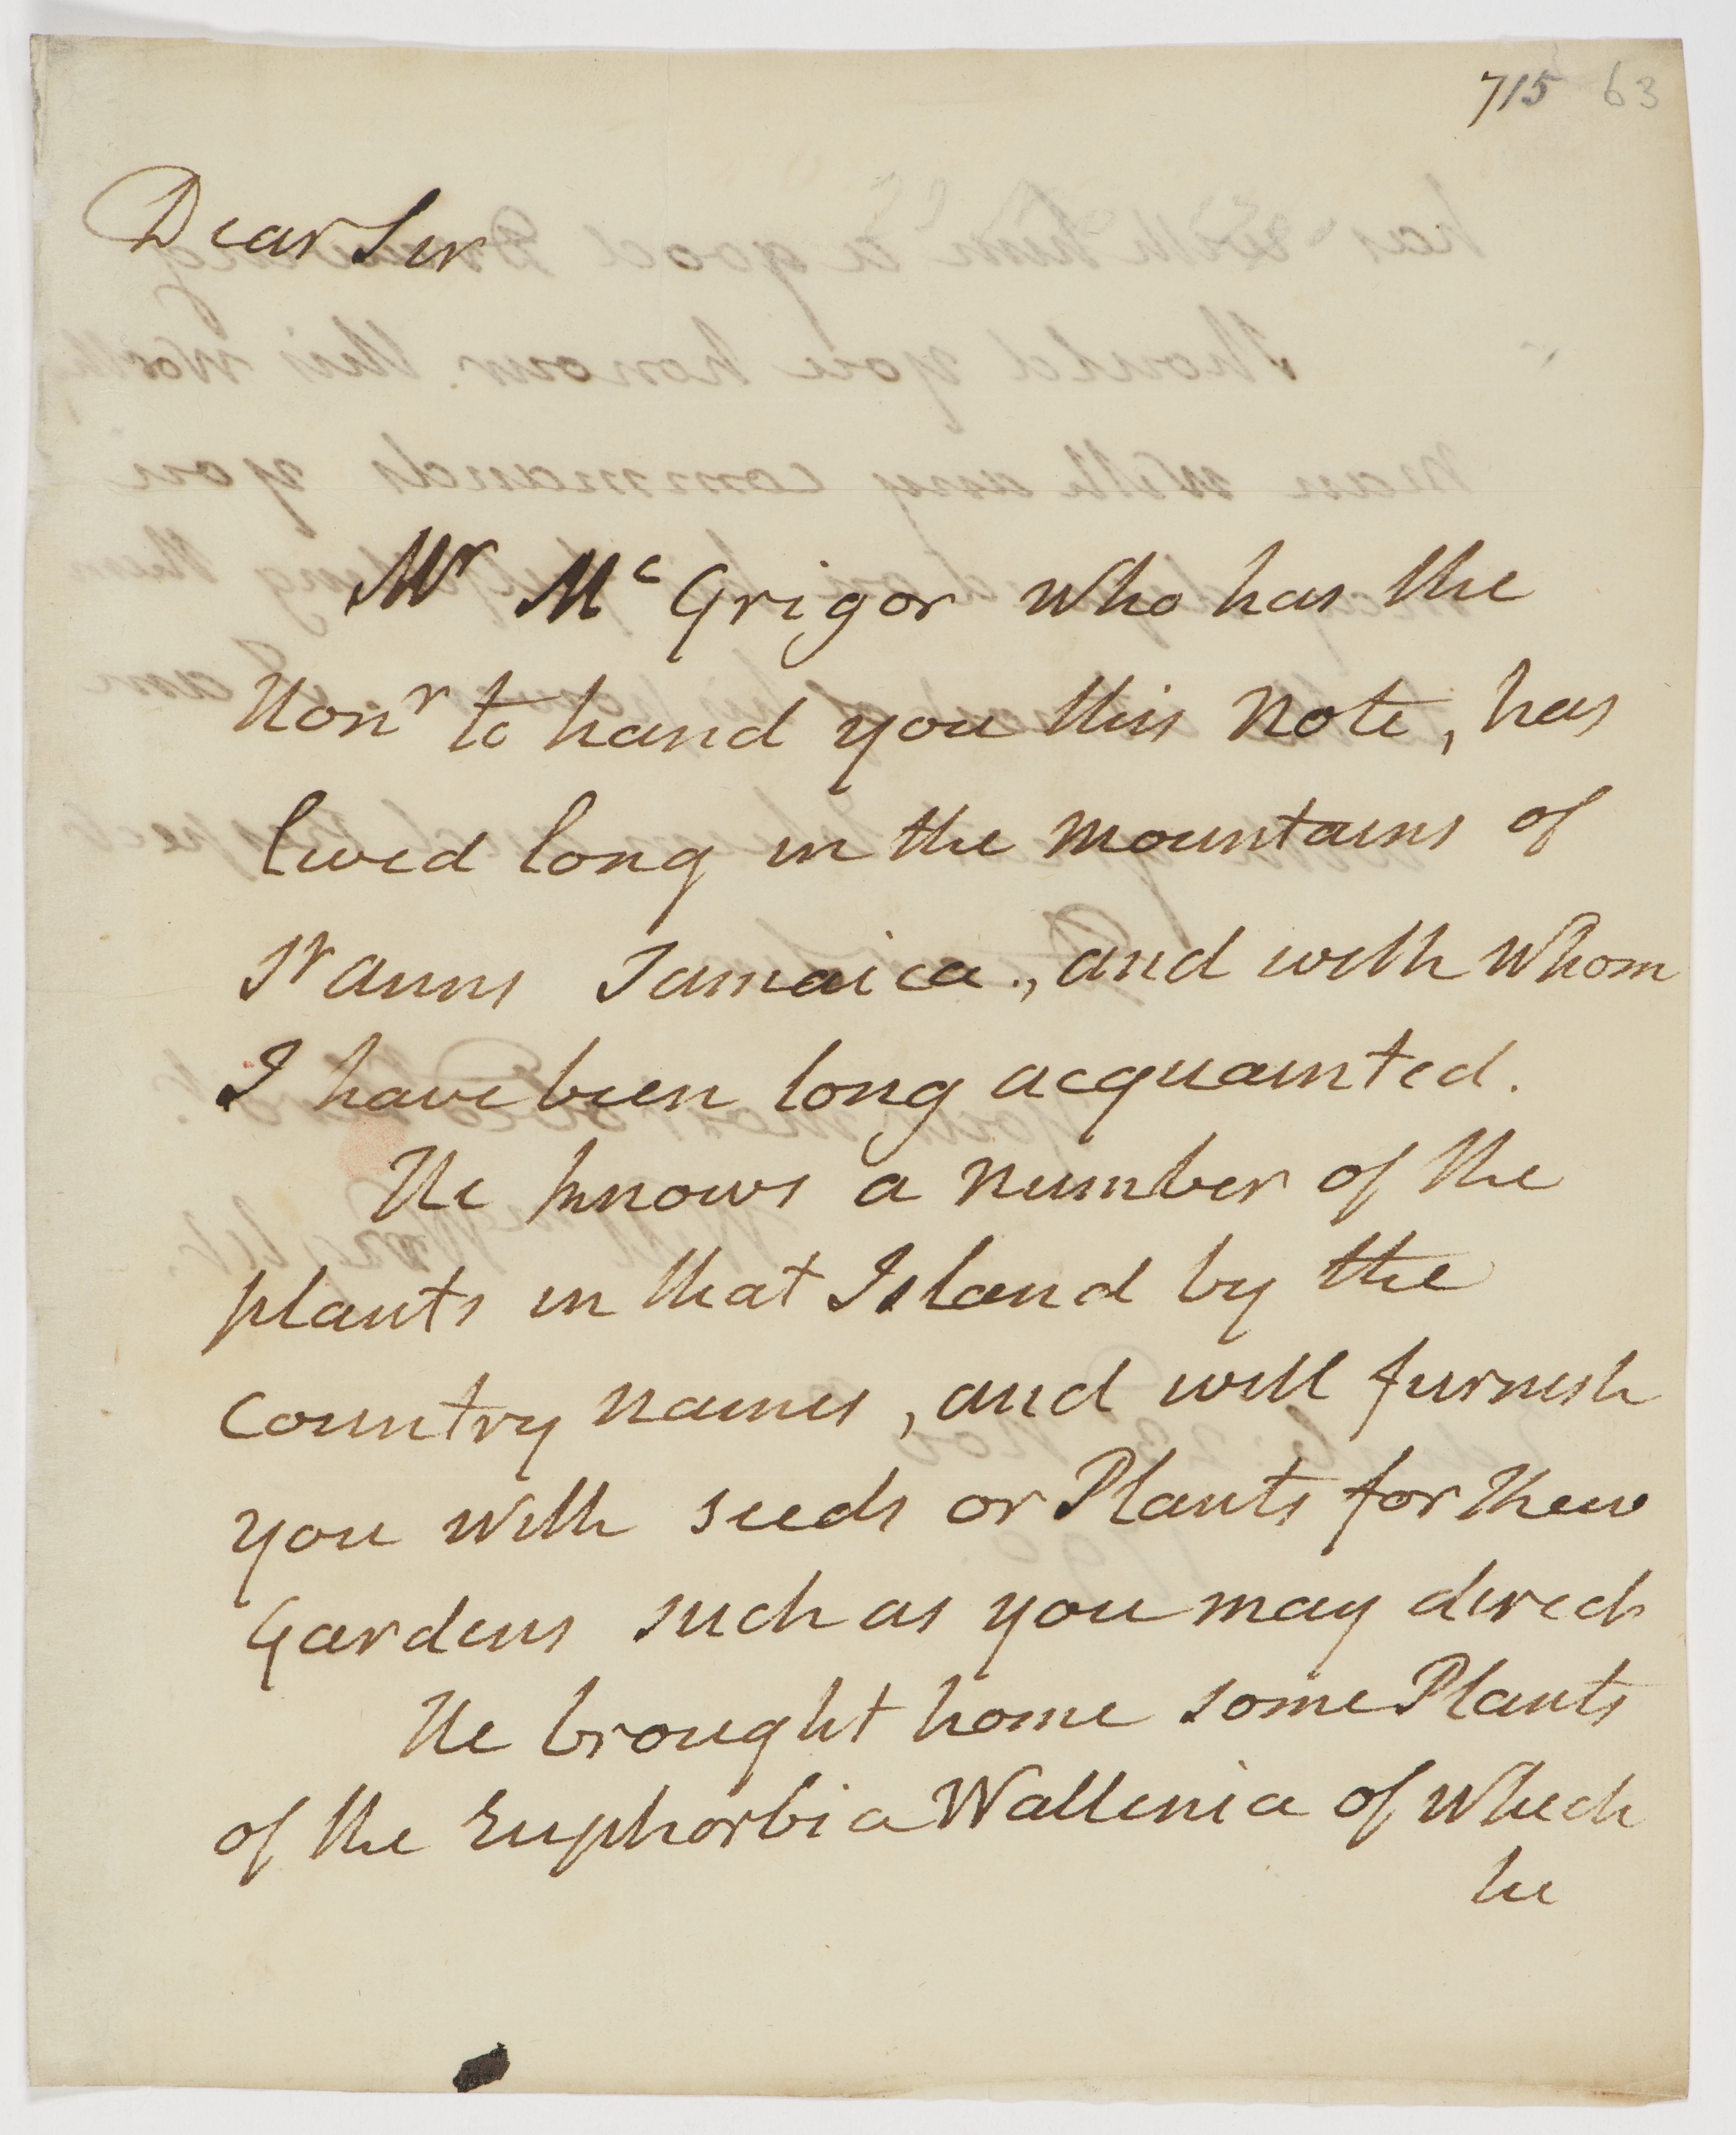 715 63
Dear Sir
Mr McGrigor who has the
Honr to hand you this Note, has
lived long in the Mountains of
St Anns Jamaica., and with whom
I have been long acquainted.
He knows a number of the
plants in that Island by the
Country names, and will furnish
you with seeds or Plants for Kew
Gardens such as you may direct
He brought home some Plants
of the Euphorbia Wallenia of which
he